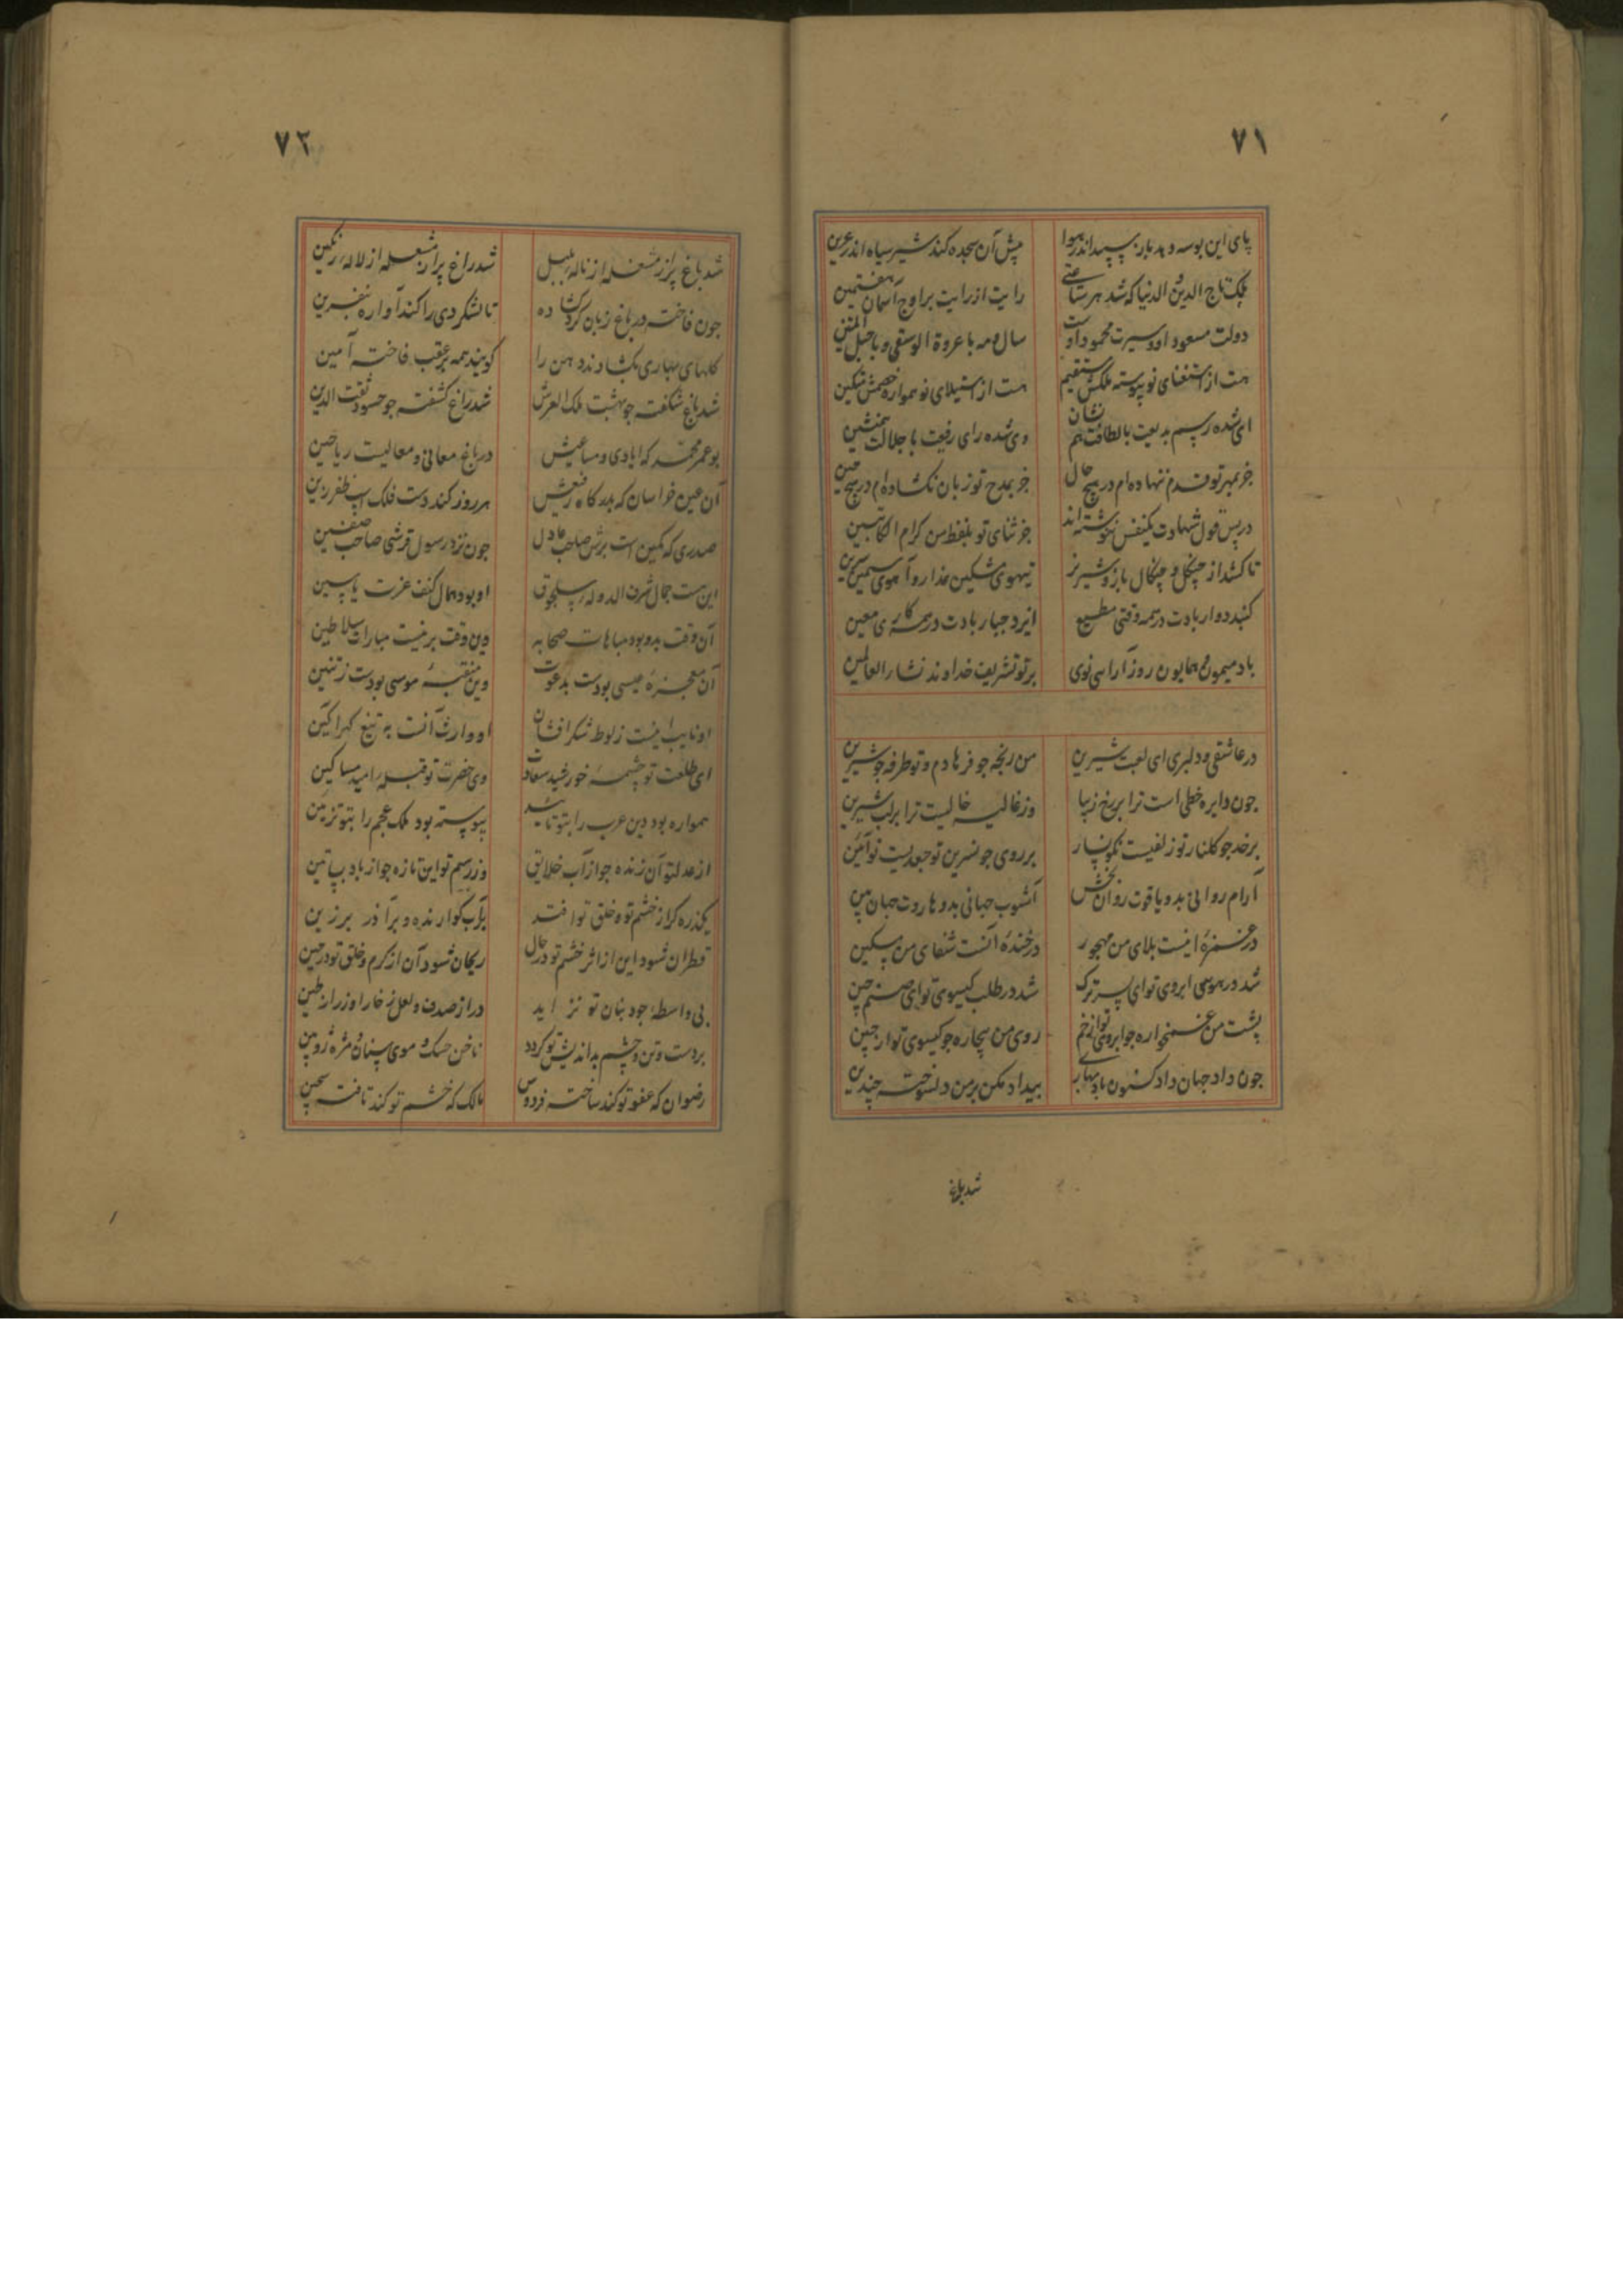 ۷۱
پای این بوسه دهد باز سپید اندر هوا
پیش آن سجده کند شیر سیاه اندر عرین
ملک تاج الدین و الدنیا که شد هر ساعتی
رایت از رایت بر اوج آسمان هفتمین
دولت مسعود او و سیرت محمود اوست
سال و مه با عروة الوثقی و با حبل المتین
هست از استغنای تو پیوسته ملکش مستقیم
هست از استیلای تو همواره خصمش مستکین
ای شده رسم بدیعت با لطافت هم نشان
وی شده رای رفیعت با جلالت همنشین
جز بمهر تو قدم ننهاده‌ام در هیچ حال
جز بمدح تو زبان نگشاده‌ام در هیچ حین
در پس قول شهادت یکنفس ننوشته‌اند
جز ثنای تو بلفظ من کرام الکاتبین
تا کشد از چنگل و چنگال باز و شیر نر
تیهوی مشکین عذار و آهوی سیمین سرین
گنبد دوار بادت در همه وقتی مطیع
ایزد جبار بادت در همه کاری معین
باد میمون و همایون روز آراسی نوی
بر تو تشریف خداوند نشار العالمین
در عاشقی و دلبری ای لعبت شیرین
من رنجه جو فرهادم و تو طرفه جو شیرین
جون دایره خطی است ترا بر رخ زیبا
وز غالیه خالیست ترا بر لب شیرین
بر خد جو گلنار تو زلفیست نگونسار
بر روی جو نسرین تو جعدیست نوآئین
آرام روانی بدو یاقوت روان بخش
آشوب جهانی بدو هاروت جهان بین
در غمزهٔ اینست بلای من مهجور
در خندهٔ آنست شفای من مسکین
شد در هوس ابروی تو ای پسر ترک
شد در طلب گیسوی تو ای صنم چین
پشت من غمخواره جو ابروی تو از خم
روی من بیچاره جو گیسوی تو از چین
جون داد جهان داد کنون باد بهاری
بیداد مکن بر من دلسوخته چندین
شد باغ
۷۲
شد باغ پر از مشغله از ناله بلبل
شد راغ پر از مشعله از لاله رنگین
جون فاخته در باغ زبان کرد گشاده
تا لشکر دی را کند آواره بنفرین
گلهای بهاری بگشادند دهن را
گویند همه بر عقب فاخته آمین
شد باغ شکفته جو بهشت ملک العرش
شد راغ کشفته جو حسود ثقت الدین
بو عمر محمد که ایادی و مساعیش
در باغ معانی و معالیست ریاحین
آن عین خراسان که بدرگاه رفیعش
هر روز کند دست فلک اسب ظفر زین
صدری که مکین است برش صاحب عادل
جون نزد رسول قرشی صاحب صفین
این هست جمال شرف الدوله سلجوق
او بود همال کنف عزت یاسین
آن وقت بدو بود مباهات صحابه
وین وقت برینست مبارات سلاطین
آن معجزهٔ عیسی بودست بدعوت
وین منقبهٔ موسی بودست ز تنین
او نایب اینست ز لوط شکر افشان
او وارث آنست به تیغ گهر آگین
ای طلعت تو چشمهٔ خورشید سعادت
وی حضرت تو قبله امید مساکین
همواره بود دین عرب را بتو تائید
پیوسته بود ملک عجم را بتو تزئین
از عدل تو آن زنده جو از آب خلایق
وز رسم تو این تازه جو از باد بساتین
یکذره گر از خشم تو و خلق تو افتد
بر آب گوارنده و بر آذر برزین
قطران شود این از اثر خشم تو در حال
ریحان شود آن از کرم و خلق تو در حین
بی واسطهٔ جود بنان تو نزاید
در از صدف و لعل ز خارا و زر از طین
بر دست و تن و چشم بداندیش تو گردد
ناخن خسک و موی سنان و مژه زوبین
رضوان که عفو تو کند ساخته فردوس
مالک که خشم تو کند تافته سجین